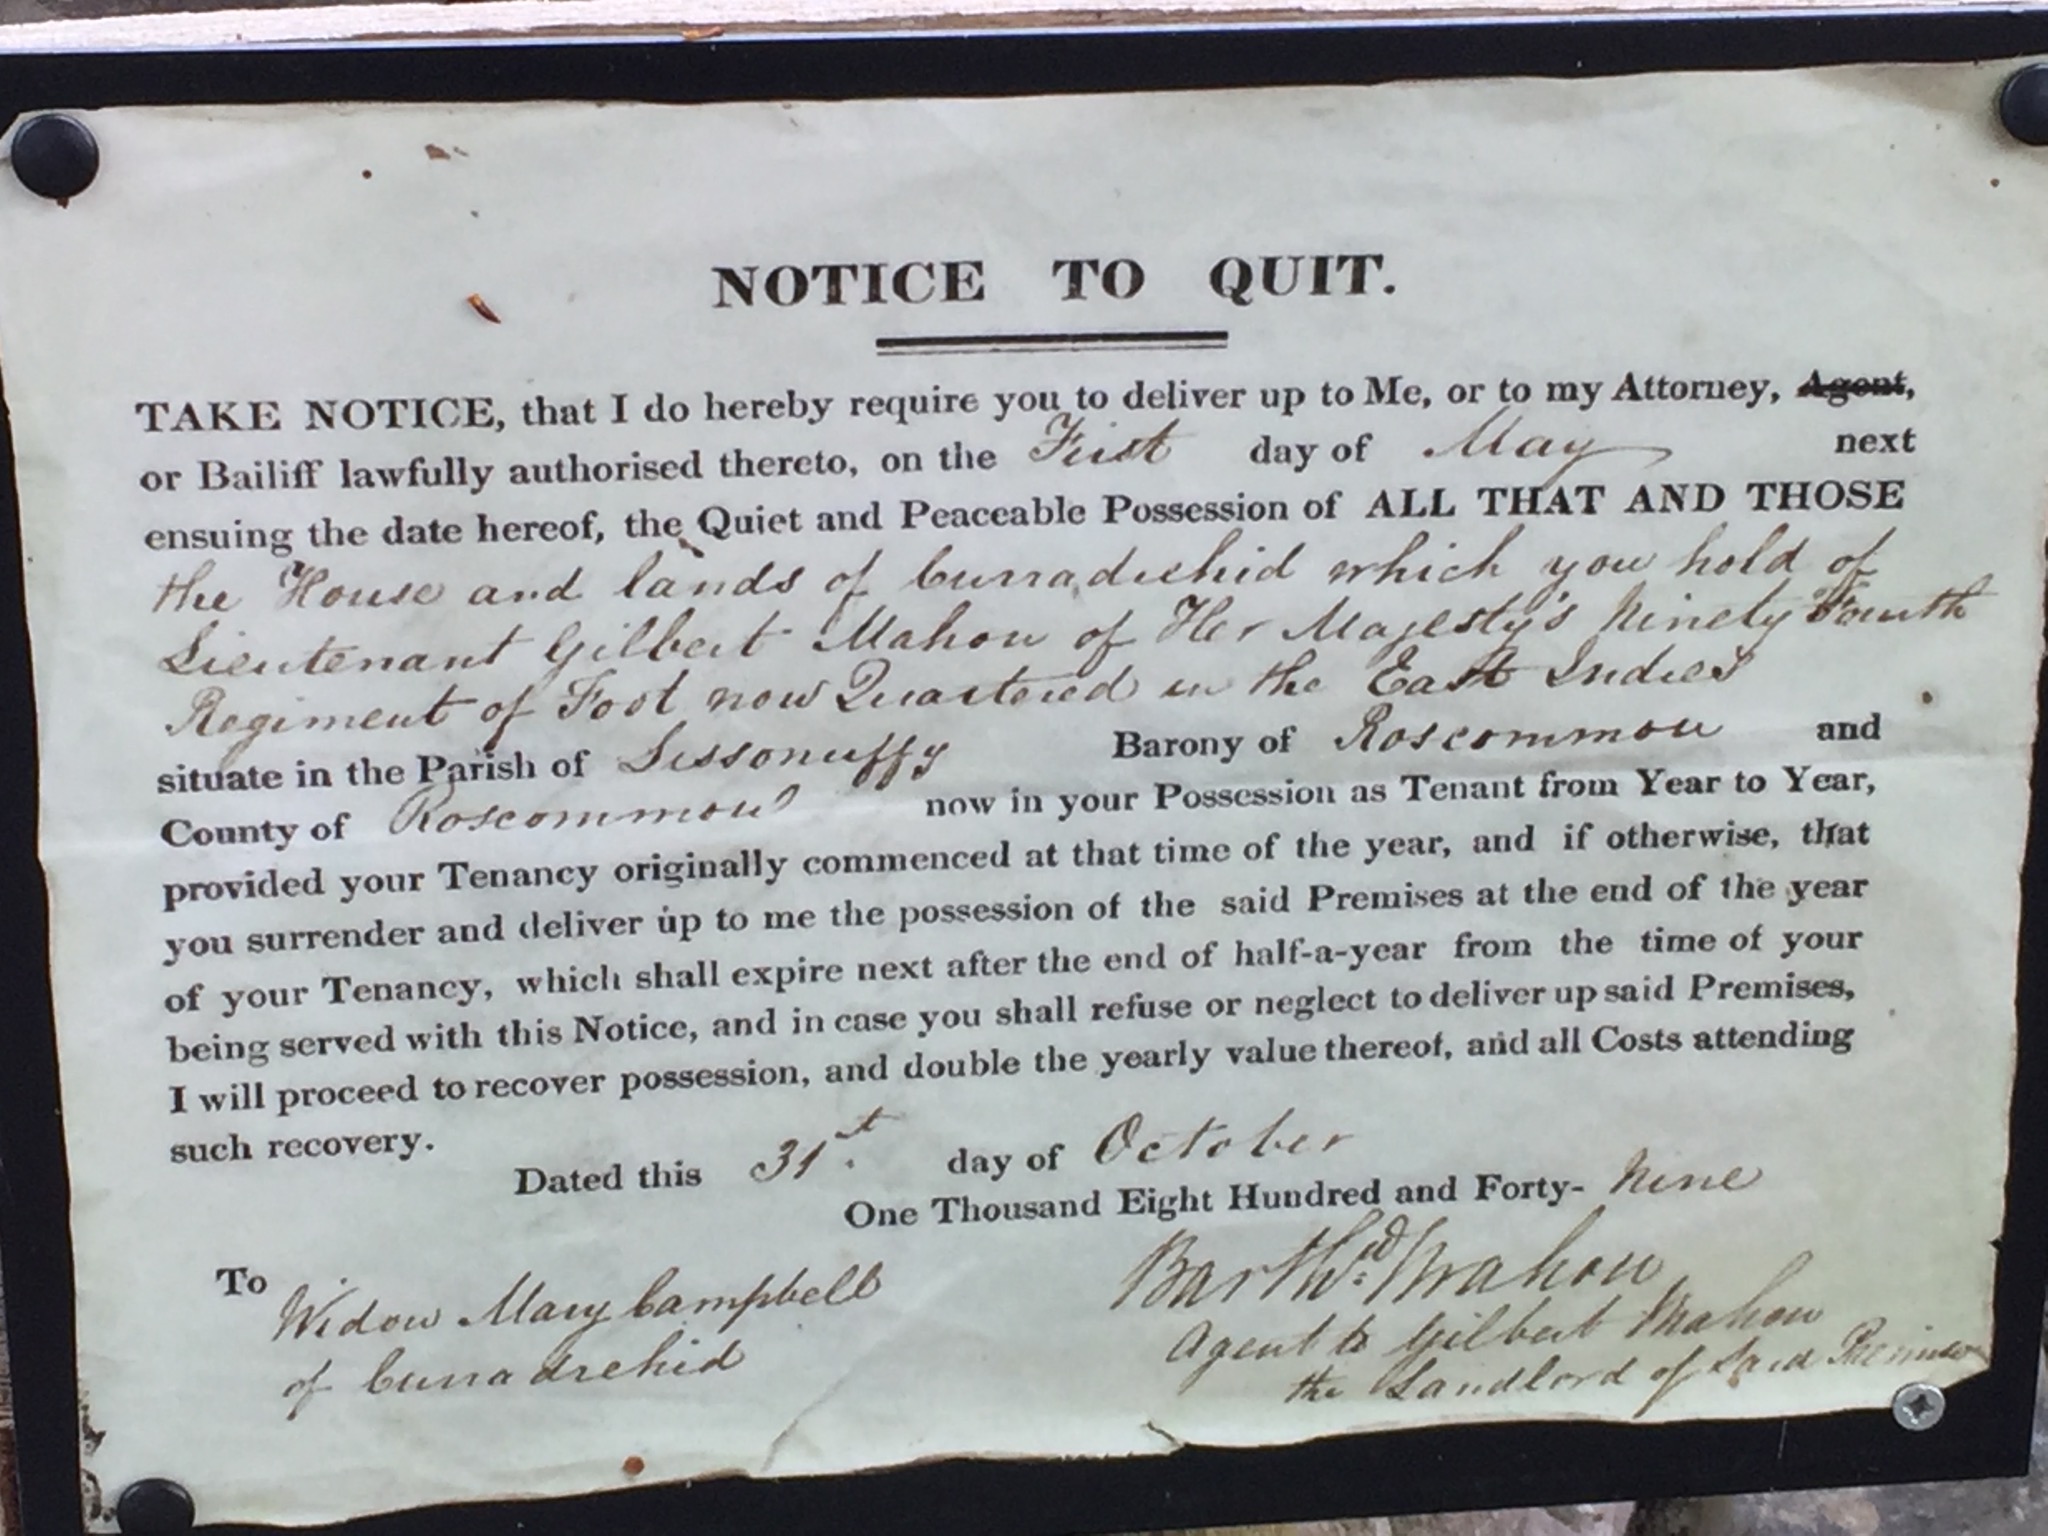 NOTICE TO QUIT.
TAKE NOTICE, that I do hereby require you to deliver up to Me, or to my Attorney, Agent,
or Bailiff lawfully authorised thereto, on the First day of May next
ensuing the date hereof, the Quiet and Peaceable Possession of ALL THAT AND THOSE
the House and lands of Curradrehid which you hold of
Lieutenant Gilbert Mahon of Her Majesty's Ninety Fourth
Regiment of Foot now Quartered in the East Indies
situate in the Parish of Lissonuffy Barony of Roscommon and
County of Roscommon now in your Possession as Tenant from Year to Year,
provided your Tenancy originally commenced at that time of the year, and if otherwise, that
you surrender and deliver up to me the possession of the said Premises at the end of the year
of your Tenancy, which shall expire next after the end of half-a-year from the time of your
being served with this Notice, and in case you shall refuse or neglect to deliver up said Premises,
I will proceed to recover possession, and double the yearly value thereof, and all Costs attending
such recovery.
Dated this 31st. day of October
One Thousand Eight Hundred and Forty- Nine
To Widow Mary Campbell
of Curradrehid
Barthw. Mahon
Agent to Gilbert Mahon
the Landlord of said Premises